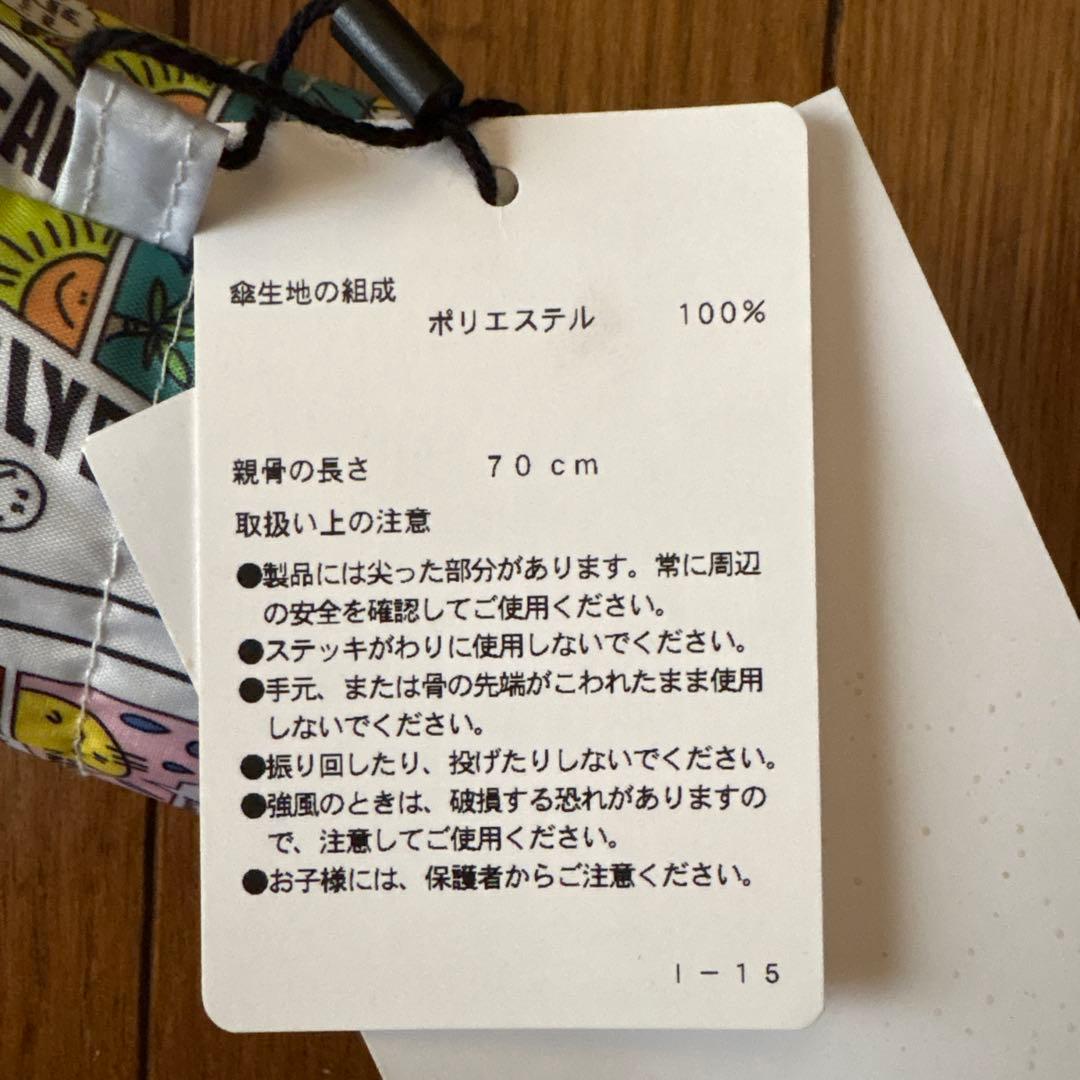 傘生地の組成
ポリエステル 100%
親骨の長さ 70cm
取扱い上の注意
●製品には尖った部分があります。常に周辺
の安全を確認してご使用ください。
●ステッキがわりに使用しないでください。
●手元、または骨の先端がこわれたまま使用
しないでください。
●振り回したり、投げたりしないでください。
●強風のときは、破損する恐れがありますの
で、注意してご使用ください。
●お子様には、保護者からご注意ください。
I-15